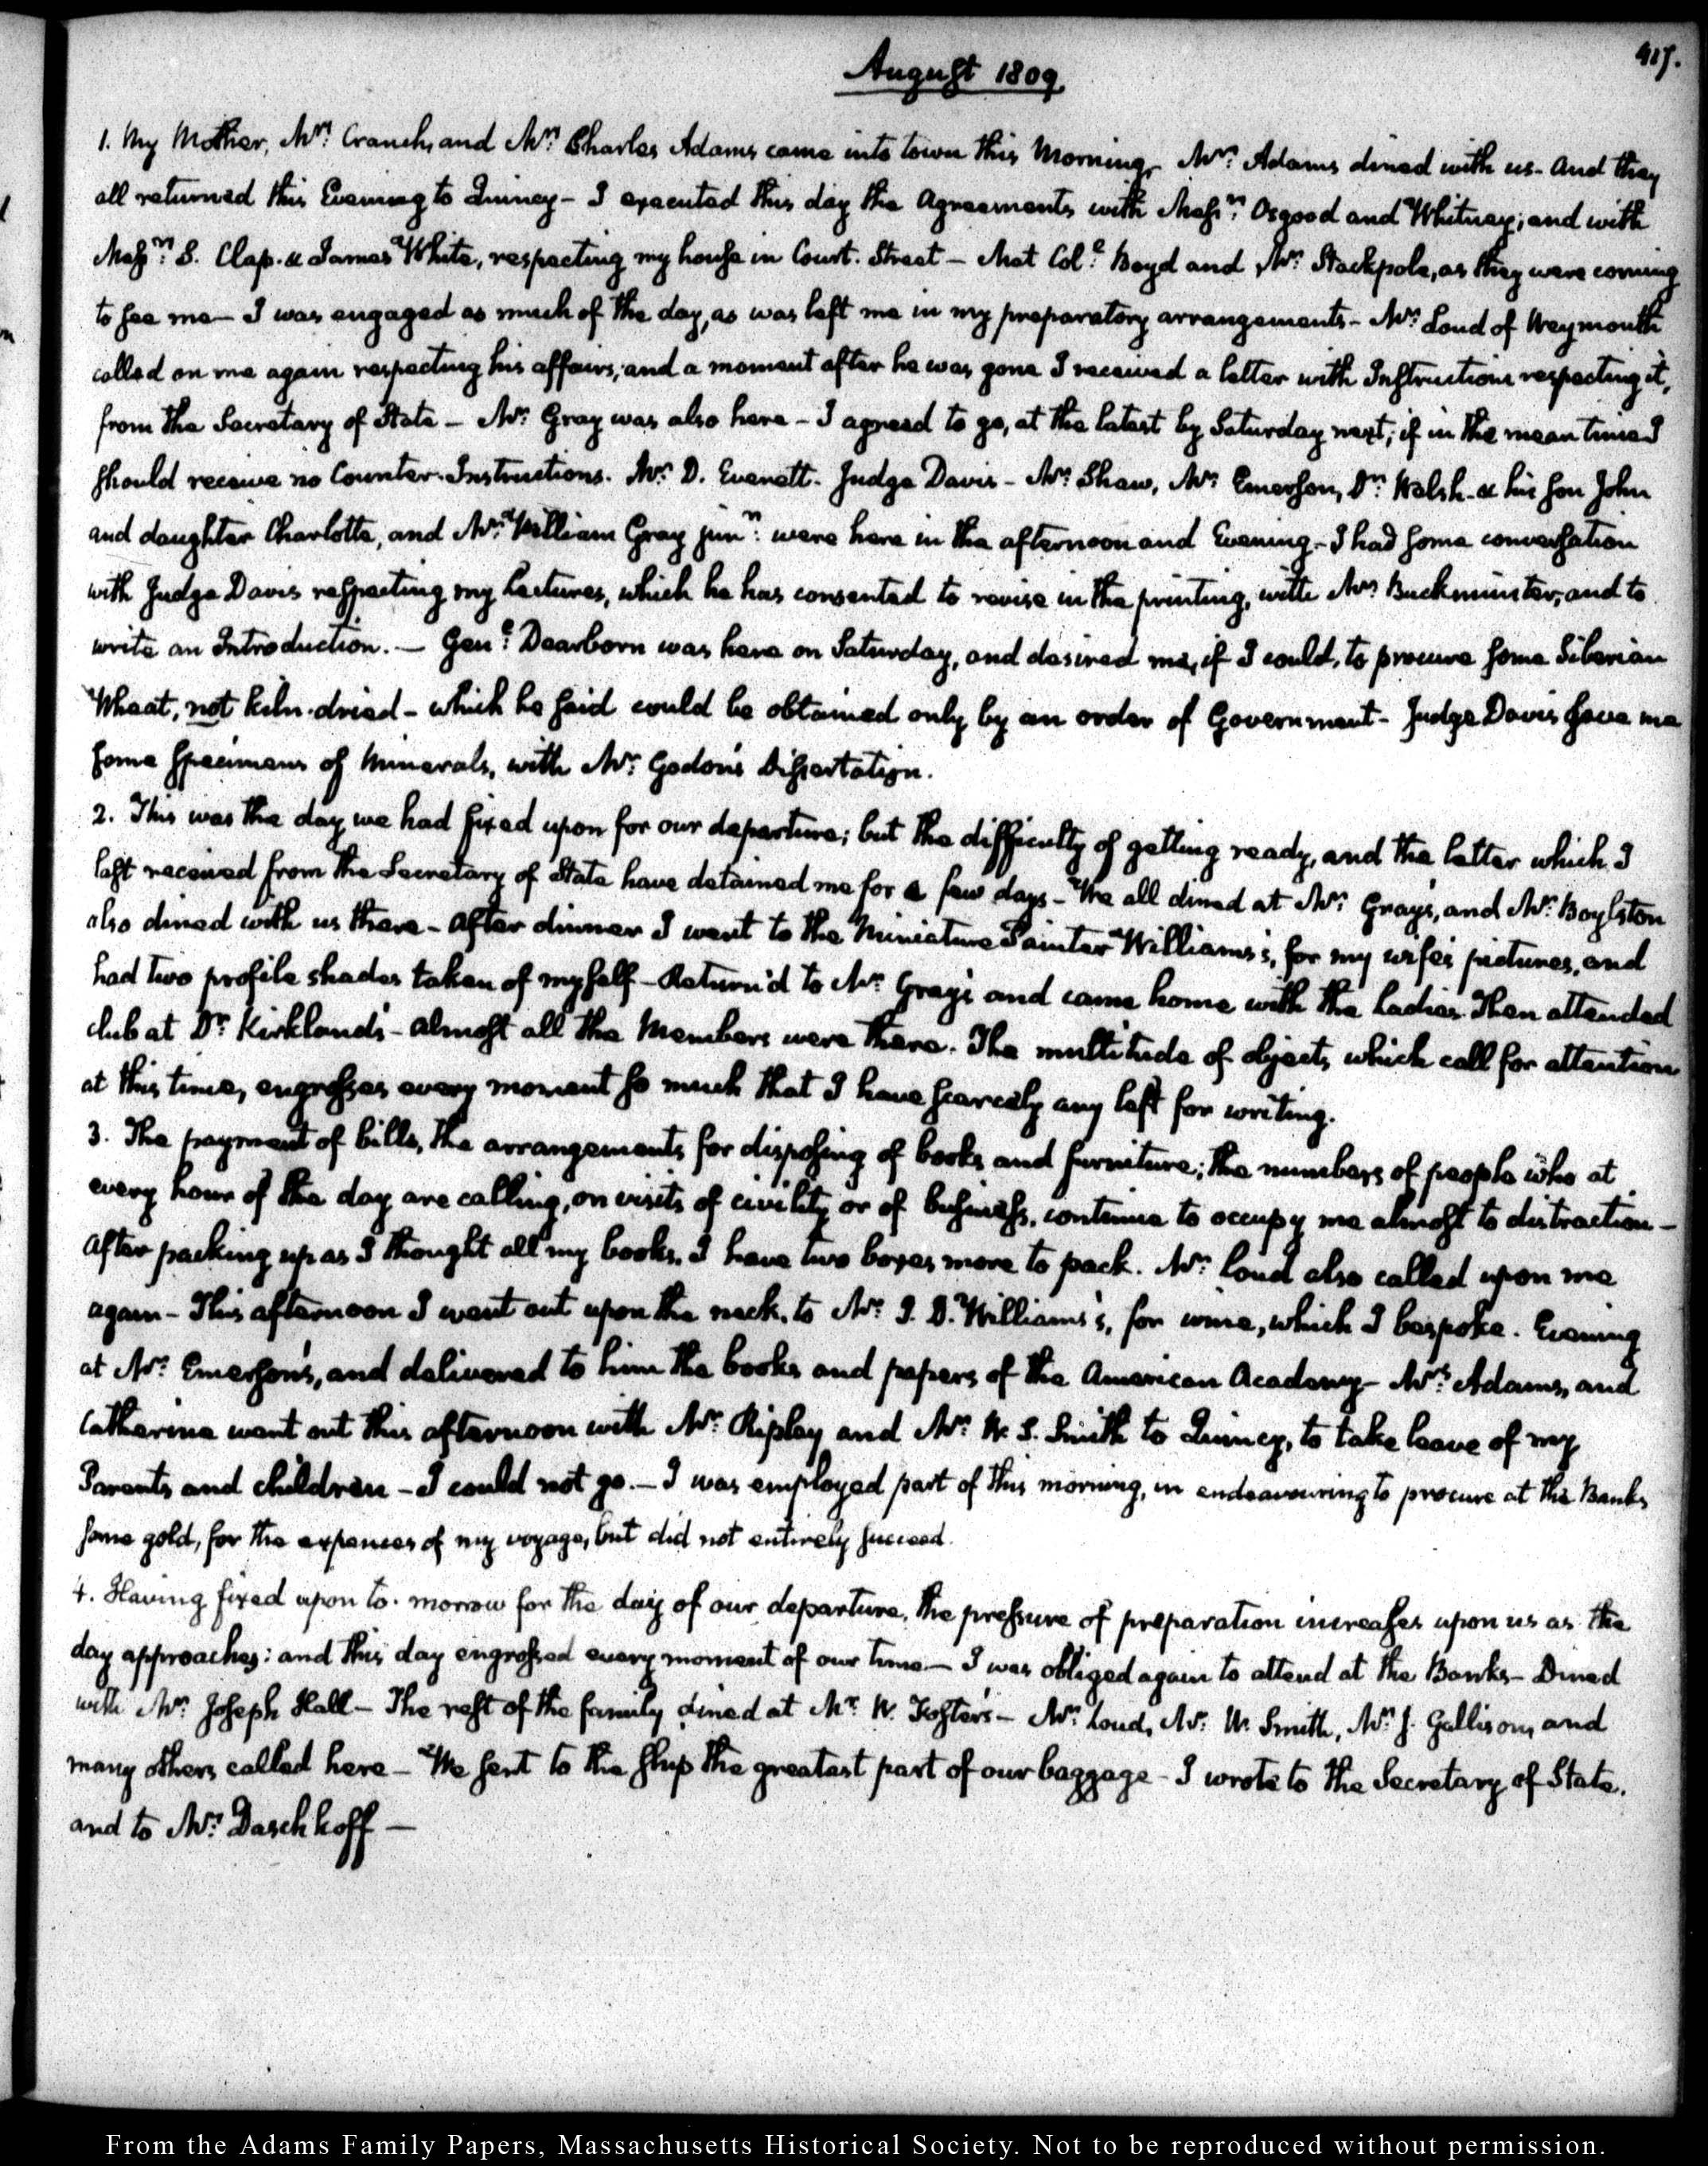 417.
August 1809.
1. My Mother, Mrs. Cranch, and Mrs. Charles Adams came into town this Morning. Mrs. Adams dined with us. And they
all returned this Evening to Quincy — I executed this day the Agreements with Messrs. Osgood and Whitney; and with
Messrs. S. Clap. & James White, respecting my house in Court. Street — Met Coll. Boyd and Mr. Stackpole, as they were coming
to see me — I was engaged as much of the day, as was left me in my preparatory arrangements — Mr. Loud of Weymouth
called on me again respecting his affairs, and a moment after he was gone I received a letter with Instructions respecting it,
from the Secretary of State — Mr. Gray was also here — I agreed to go, at the latest by Saturday next, if in the mean time I
should receive no Counter-Instructions. Mr. D. Everett. Judge Davis — Mr. Shaw, Mr. Emerson, Dr. Welsh & his son John
and daughter Charlotte, and Mr. William Gray junr. were here in the afternoon and Evening. — I had some conversation
with Judge Davis respecting my Lectures, which he has consented to revise in the printing, with Mr. Buckminster, and to
write an Introduction. — Genl. Dearborn was here on Saturday, and desired me, if I could, to procure some Siberian
Wheat, not kiln-dried — which he said could be obtained only by an order of Government — Judge Davis gave me
some specimens of Minerals, with Mr. Godon's Dissertation.
2. This was the day we had fixed upon for our departure; but the difficulty of getting ready, and the letter which I
last received from the Secretary of State have detained me for a few days — We all dined at Mr. Gray's, and Mr. Boylston
also dined with us there — After dinner I went to the Miniature Painter Williams's, for my wife's pictures, and
had two profile shades taken of myself — Return'd to Mr. Gray's and came home with the Ladies. Then attended
club at Dr. Kirkland's — almost all the Members were there. The multitude of objects which call for attention
at this time, engrosses every moment so much that I have scarcely any left for writing.
3. The payment of bills, the arrangements for disposing of books and furniture; the numbers of people who at
every hour of the day are calling, on visits of civility or of business, continue to occupy me almost to distraction —
After packing up as I thought all my books, I have two boxes more to pack. Mr. Loud also called upon me
again — This afternoon I went out upon the neck, to Mr. J. D. Williams's, for wine, which I bespoke. Evening
at Mr. Emerson's, and delivered to him the books and papers of the American Academy — Mrs. Adams, and
Catherine went out this afternoon with Mr. Ripley and Mr. W. S. Smith to Quincy, to take leave of my
Parents and children — I could not go. — I was employed part of this morning, in endeavouring to procure at the Banks
some gold, for the expences of my voyage, but did not entirely succeed.
4. Having fixed upon to-morrow for the day of our departure, the pressure of preparation increases upon us as the
day approaches: and this day engrossed every moment of our time — I was obliged again to attend at the Banks — Dined
with Mr. Joseph Hall — The rest of the family dined at Mr. W. Foster's — Mr. Loud, Mr. W. Smith, Mr. J. Gallison, and
many others called here — We sent to the ship the greatest part of our baggage — I wrote to the Secretary of State,
and to Mr. Daschkoff —
From the Adams Family Papers, Massachusetts Historical Society. Not to be reproduced without permission.